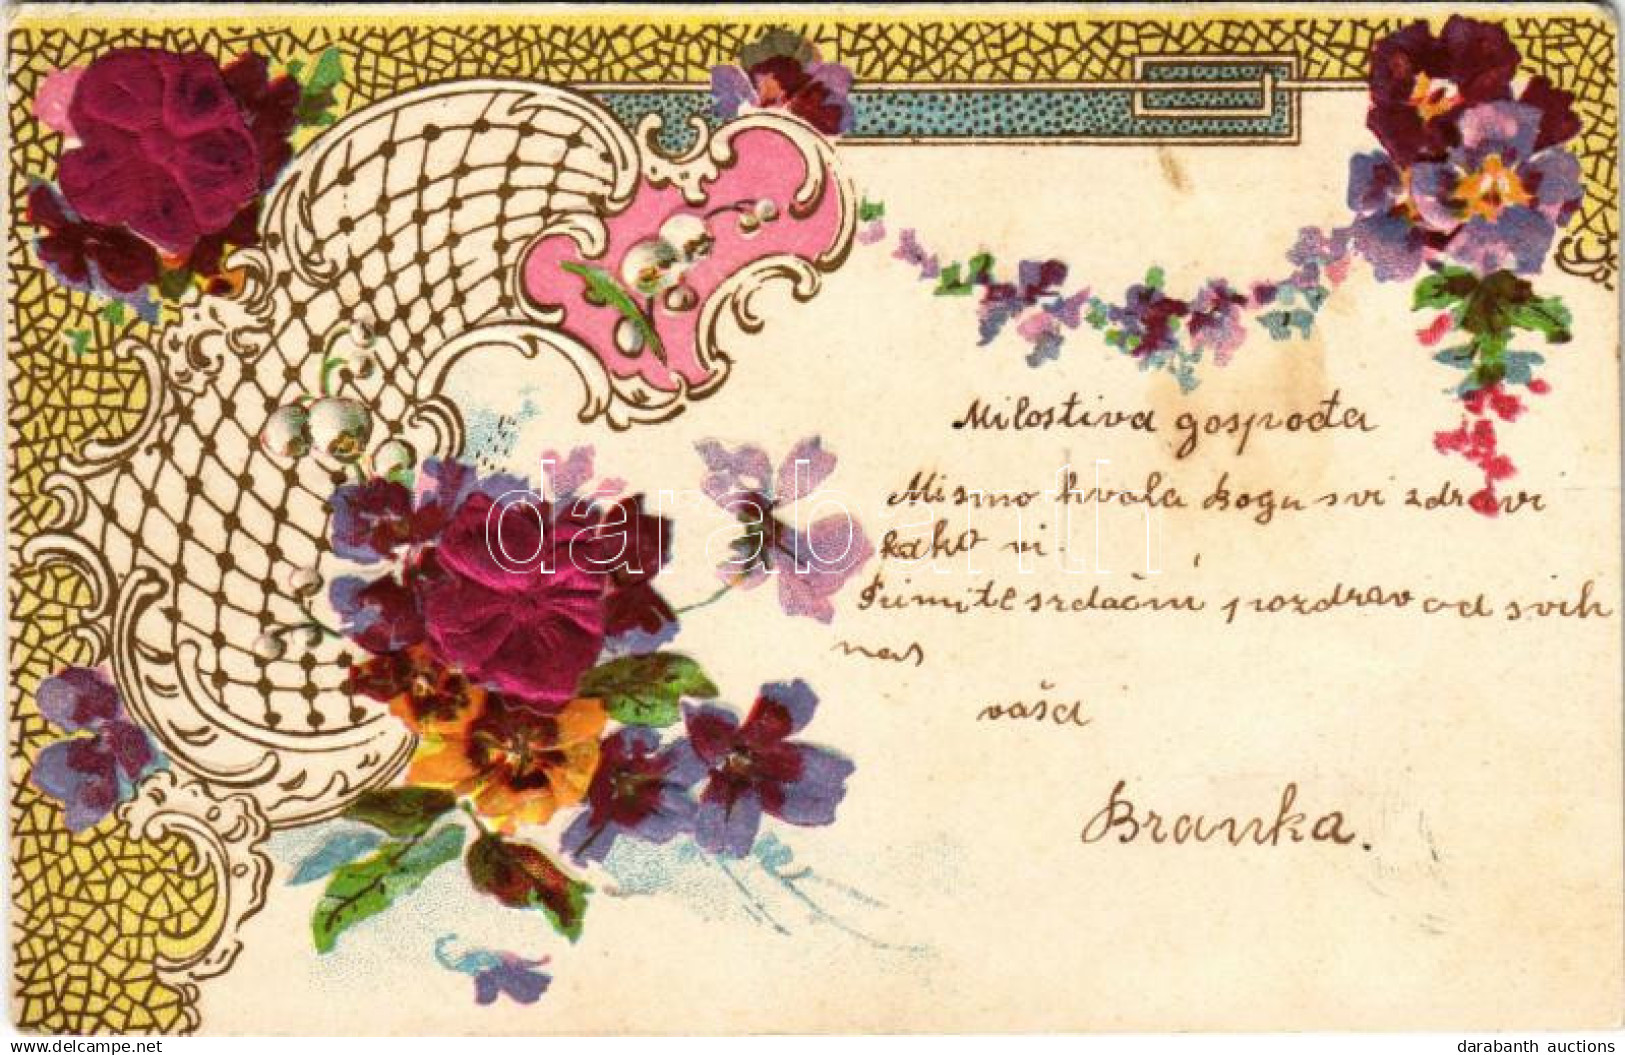 Milostiva gospođa
Mi smo hvala Bogu svi zdravi
kako vi.
Primite srdačni pozdrav od svih
nas
vaša
Branka.
darabanth
delcampe.net
darabanth auctions